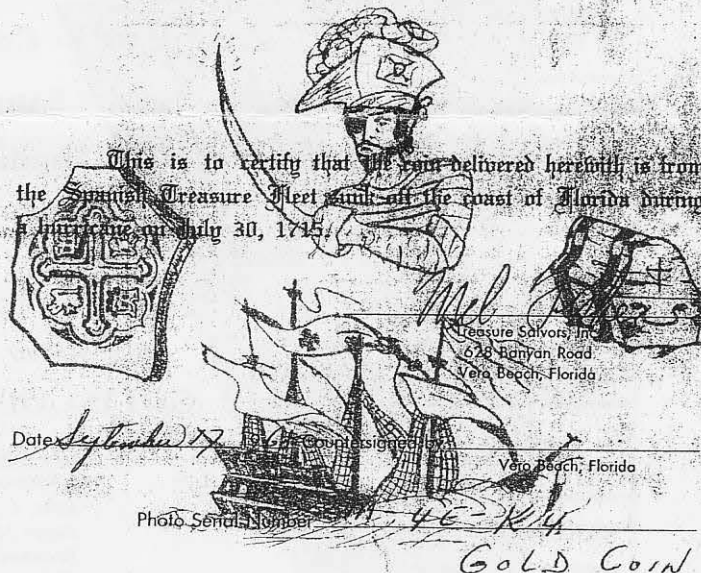 This is to certify that the coin delivered herewith is from
the Spanish Treasure Fleet sunk off the coast of Florida during
a hurricane on July 30, 1715.
Mel Fisher
Treasure Salvors, Inc.
628 Banyan Road
Vero Beach, Florida
Date September 17 196 Countersigned by
Vero Beach, Florida
Photo Serial Number 4E-K4
GOLD COIN